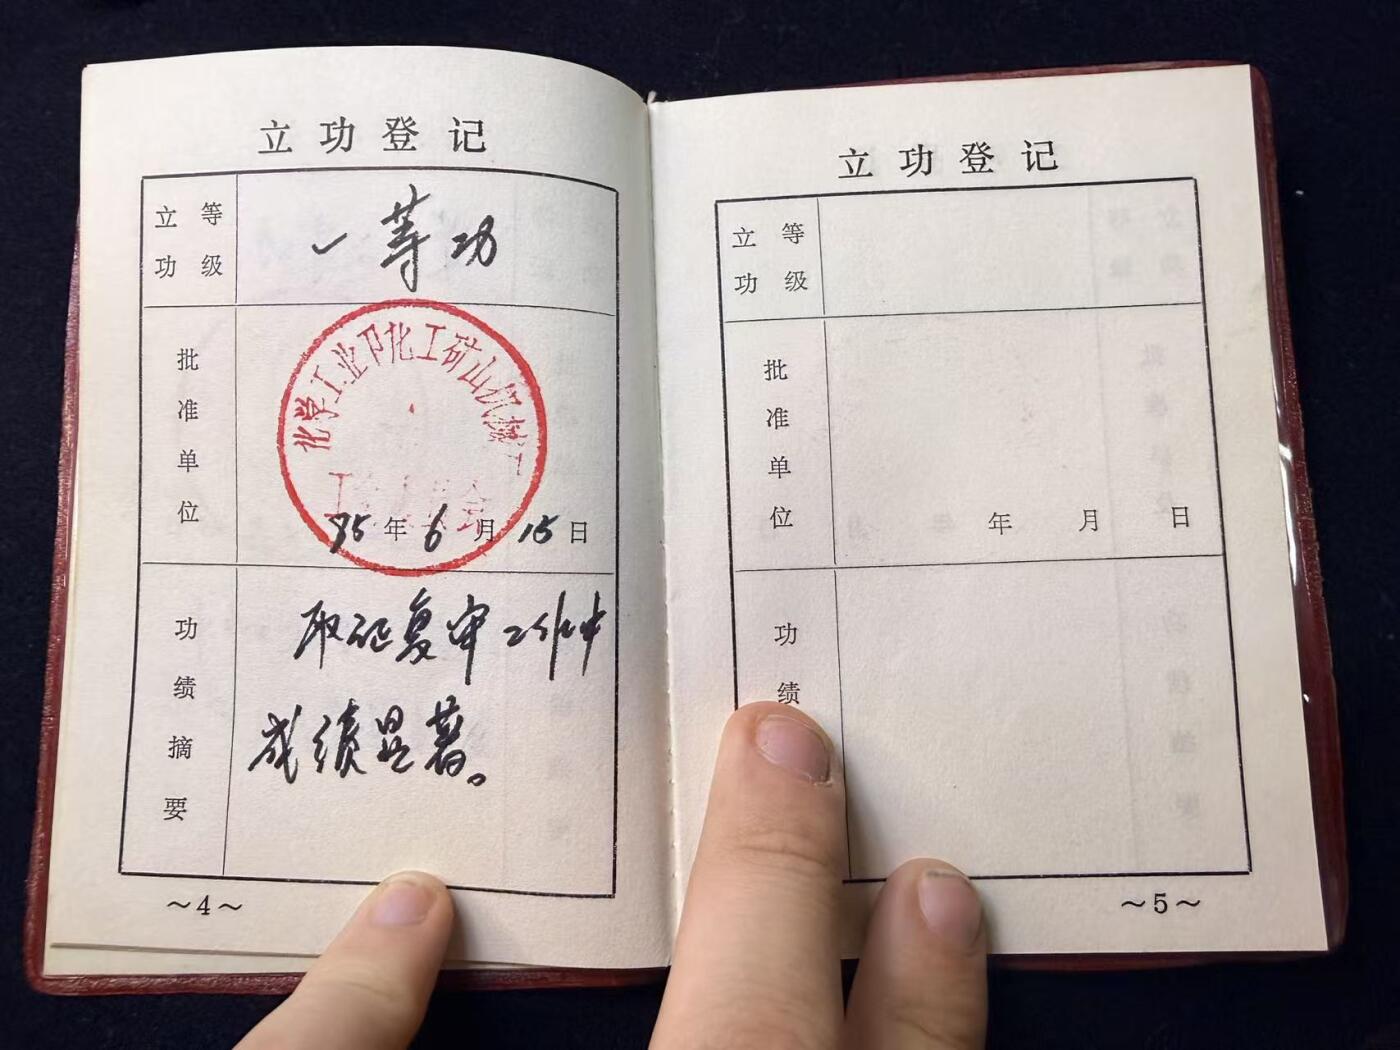 立功登记
立功等级
一等功
批准单位
化学工业部化工矿山机械厂
工会委员会
85年6月15日
功绩摘要
取证复审工作中
成绩显著。
~4~
立功登记
立功等级
批准单位
年 月 日
功绩
~5~